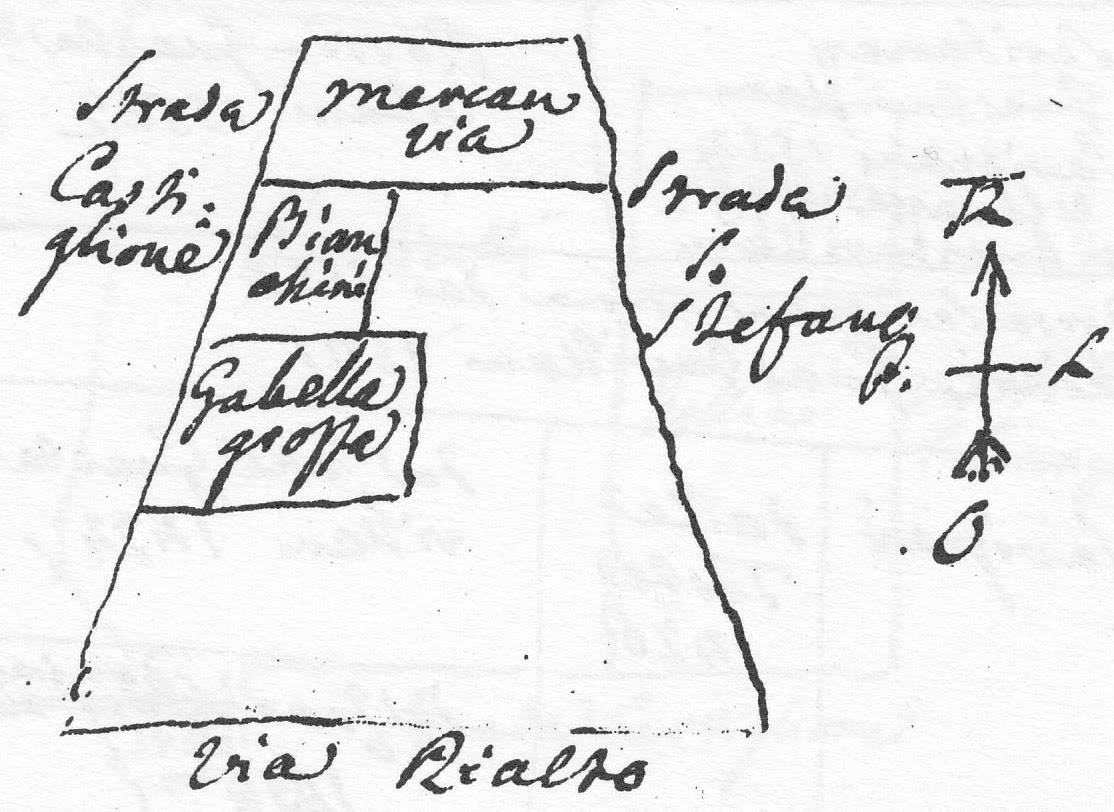 Strada
Casti:
glione
mercan
zia
Bian
chini
Gabella
grossa
Strada
S.
Stefano
P. L
O
Via Rialto